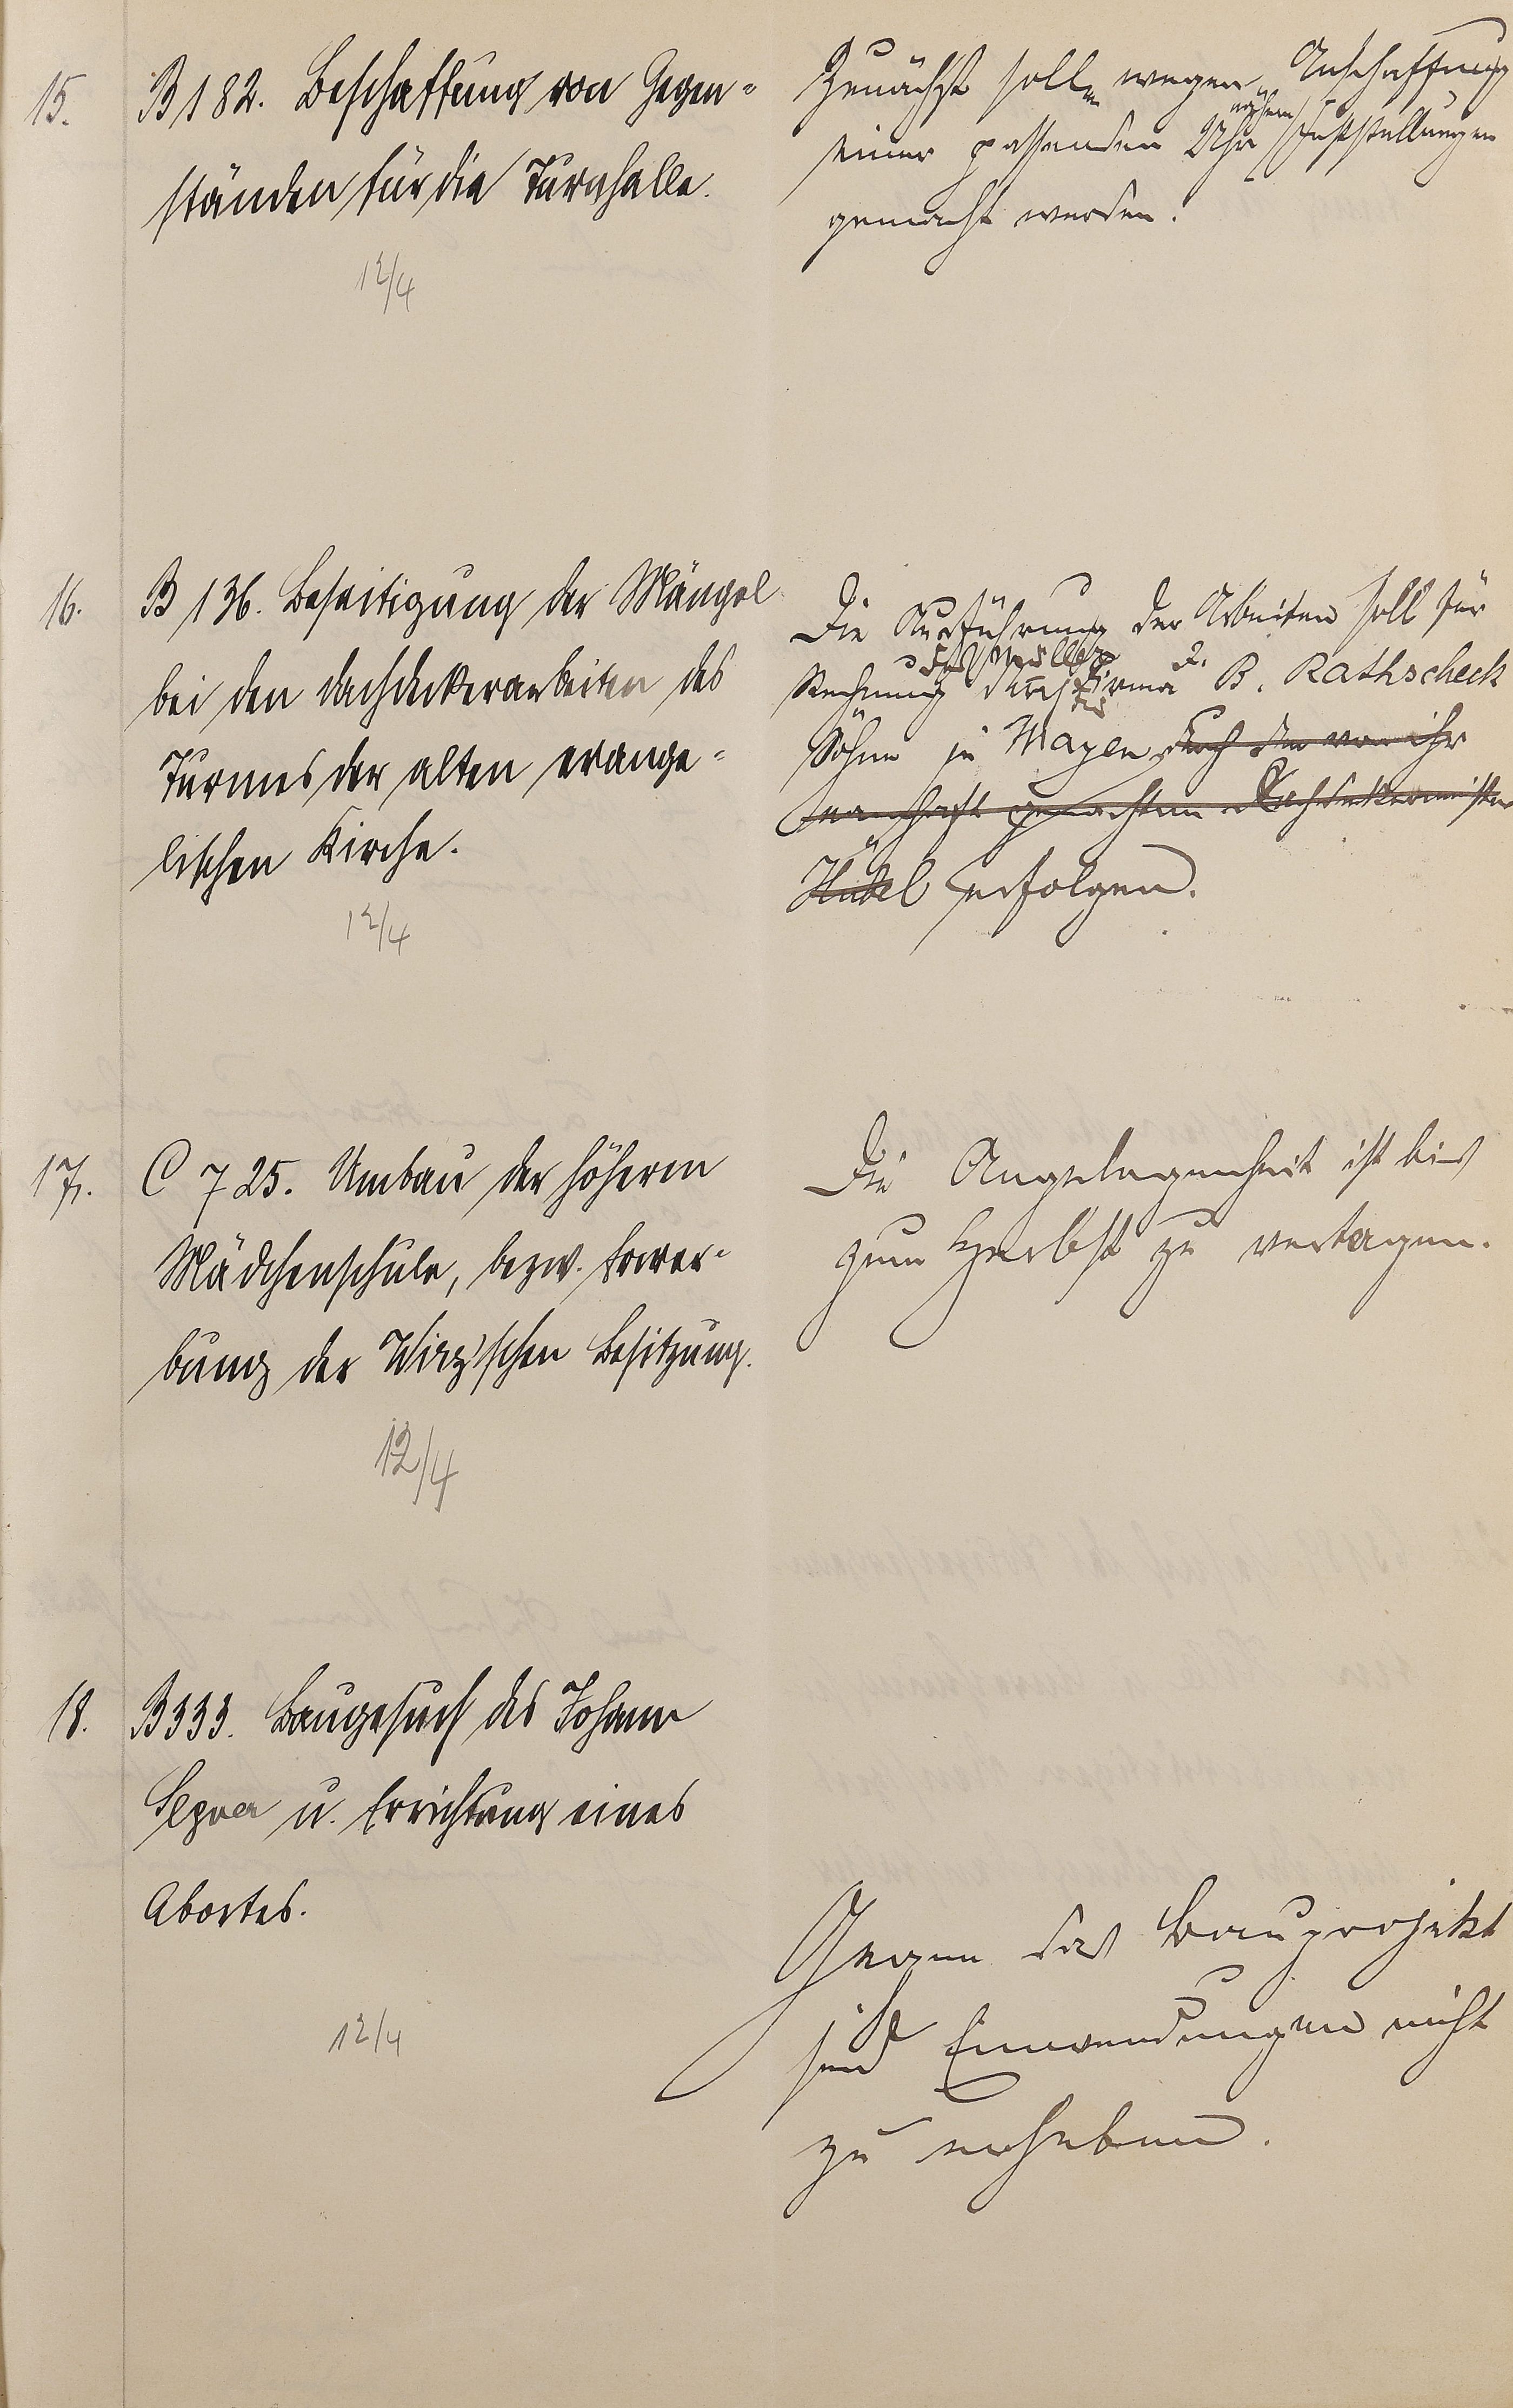 15.
B 182. Beschaffung von Gegen-
ständen für die Turnhalle.
12/4
Zunächst sollen wegen Anschaffung
einer passenden Uhr nähere Feststellungen
gemacht werden.
16.
B 136. Beseitigung der Mängel
bei den Dachdeckerarbeiten des
Turmes der alten evange-
lischen Kirche.
12/4
Die Ausführung der Arbeiten soll für
Rechnung des Müller durch die Firma J. B. Rathscheck
Söhne zu Mayen durch den von ihr
namhaft gemachten Dachdeckermeister
Hübel erfolgen.
17.
C 725. Umbau der höheren
Mädchenschule, bezw. Erwer-
bung der Wirz'schen Besitzung.
12/4
Die Angelegenheit ist bis
zum Herbst zu vertagen.
18.
B 333. Baugesuch des Johann
u. Errichtung eines
Abortes.
12/4
Gegen das Bauprojekt
sind Einwendungen nicht
zu erheben.